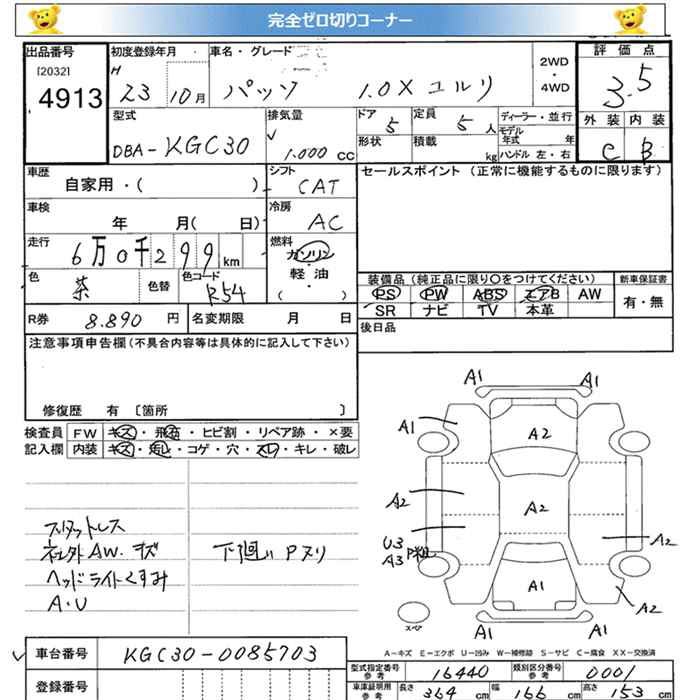 完全ゼロ切りコーナー
出品番号 初度登録年月 車名・グレード 2WD・4WD 評価点
[2032] 4913 H 23 10月 パッソ 1.0X ユルリ 3.5
型式 DBA-KGC30 排気量 1.000 CC ドア 5 定員 5 人 ディーラー・並行 外装 内装
形状 積載 kg モデル年式 年 ハンドル 左・右 C B
車歴 自家用・( ) シフト CAT セールスポイント (正常に機能するものに限ります)
車検 年 月( 日) 冷房 AC
走行 6万0千299km 燃料 ガソリン・軽油 ( )
色 茶 色替 色コード R54 装備品 (純正品に限り○をつけてください) 新車保証書
PS PW ABS エアB AW 有・無
R券 8.890 円 名変期限 月 日 SR ナビ TV 本革
後日品
注意事項申告欄 (不具合内容等は具体的に記入して下さい)
修復歴 有 [箇所 ]
検査員 FW キズ・飛石・ヒビ割・リペア跡・×要
記入欄 内装 キズ・汚レ・コゲ・穴・スレ・キレ・破レ
A1 A1
A1 A2
A2 A2 A2
U3 P粗
A3
A1 A2
スペア
スタットレス
社外AW.キズ 下廻りPヌリ
ヘッドライトくすみ
A・U
A-キズ E-エクボ U-凹み W-補修跡 S-サビ C-腐食 XX-交換済
車台番号 KGC30-0085703
登録番号
型式指定番号 参考 16440 類別区分番号 参考 0001
車庫証明用 参考 長さ 364 cm 幅 166 cm 高さ 153 cm